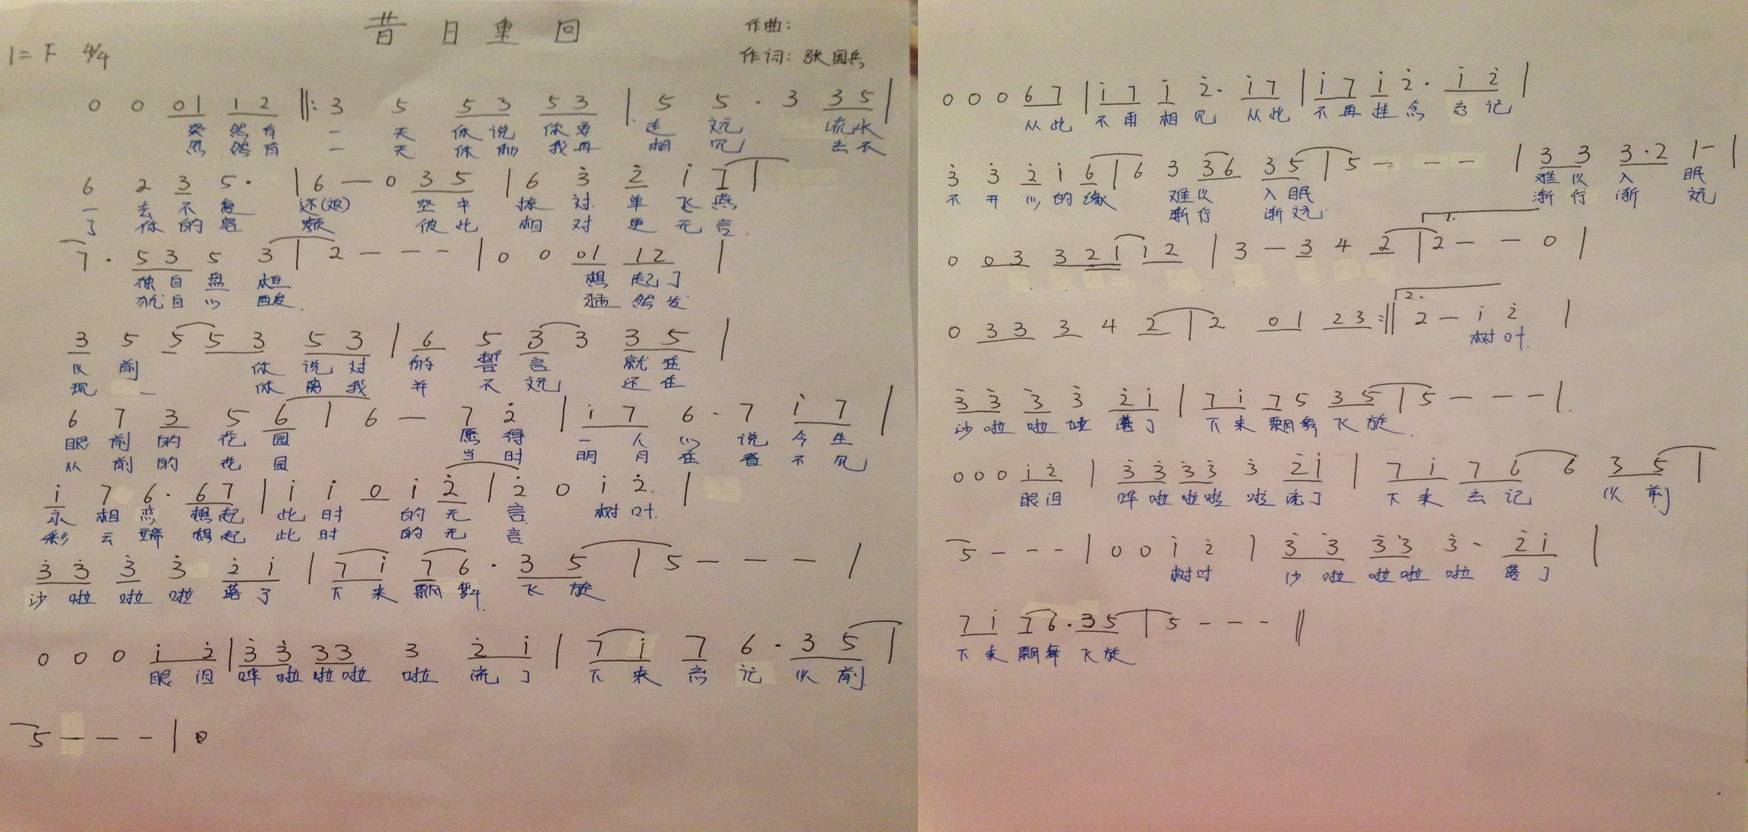 昔日重回
作曲:
1=F 4/4
作词: 张国兵
0 0 01 12 ‖: 3 5 53 53 | 5 5· 3 35 |
突然有 一 天 你说 你要 走 远 流水
忽然有 一 天 你 我再 相 见 去不
6 2 3 5· | 6 — 0 35 | 6 3̇ 2̇ i 7 |
一 去 不 复 还(返) 空中 掠 过 单 飞 燕
了 你 的 容 颜 彼此 相 对 更 无 言
7· 53 5 3 | 2 — — — | 0 0 01 12 |
独自 盘 桓 想 起了
犹自 心 酸 猛 然发
3 5 5 53 53 | 6 5 3 3 35 |
以 前 你 说过 的 誓 言 就在
现 你 离我 并 不 远 还在
6 7 3 5 6 | 6 — 7 2̇ | i 7 6· 7 i 7 |
眼 前 的 花 园 愿 得 一 人 心 说 今 生
从 前 的 花 园 当 时 明 月 在 看 不 见
i 7 6· 67 | i i 0 i 2̇ | 2̇ 0 i 2̇ |
永 相 恋 想起 此 时 的 无 言 树叶
彩 云 归 想起 此 时 的 无 言
3̇ 3̇ 3̇ 3̇ 2̇ i | 7 i 7 6· 3 5 | 5 — — — |
沙 啦 啦 啦 落 了 下 来 飘 舞 飞 旋
0 0 0 i 2̇ | 3̇ 3̇ 3̇3̇ 3 2̇ i | 7 i 7 6· 3 5 |
眼 泪 哗 啦 啦啦 啦 流 了 下 来 忘 记 以 前
5 — — — | 0
0 0 0 67 | i 7 i 2̇· i 7 | i 7 i 2̇· i 2̇ |
从此 不 再 相 见 从此 不 再 挂 念 忘 记
3̇ 3̇ 2̇ i 6 | 6 3 36 35 | 5 — — — | 3 3 3·2 1— |
不 开 心 的 缘 难以 入眠 难 以 入 眠
渐行 渐远 渐 行 渐 远
0 03 321 12 | 3 — 3 4 2 | 1. 2 — — 0 |
0 33 3 4 2 | 2 01 23 :‖ 2. 2 — i 2̇ |
树叶
3̇ 3̇ 3̇ 3̇ 2̇i | 7i 75 35 | 5 — — — |
沙 啦 啦 啦 落了 下来 飘舞 飞旋
0 0 0 i 2̇ | 3̇ 3̇ 3̇ 3̇ 3̇ 2̇i | 7 i 7 6 6 3 5 |
眼泪 哗 啦 啦啦 啦 流了 下 来 忘记 以 前
5 — — — | 0 0 i 2̇ | 3̇ 3̇ 3̇3̇ 3̇· 2̇ i |
树叶 沙 啦 啦啦 啦 落 了
7 i 76· 35 | 5 — — — ‖
下 来 飘舞 飞旋